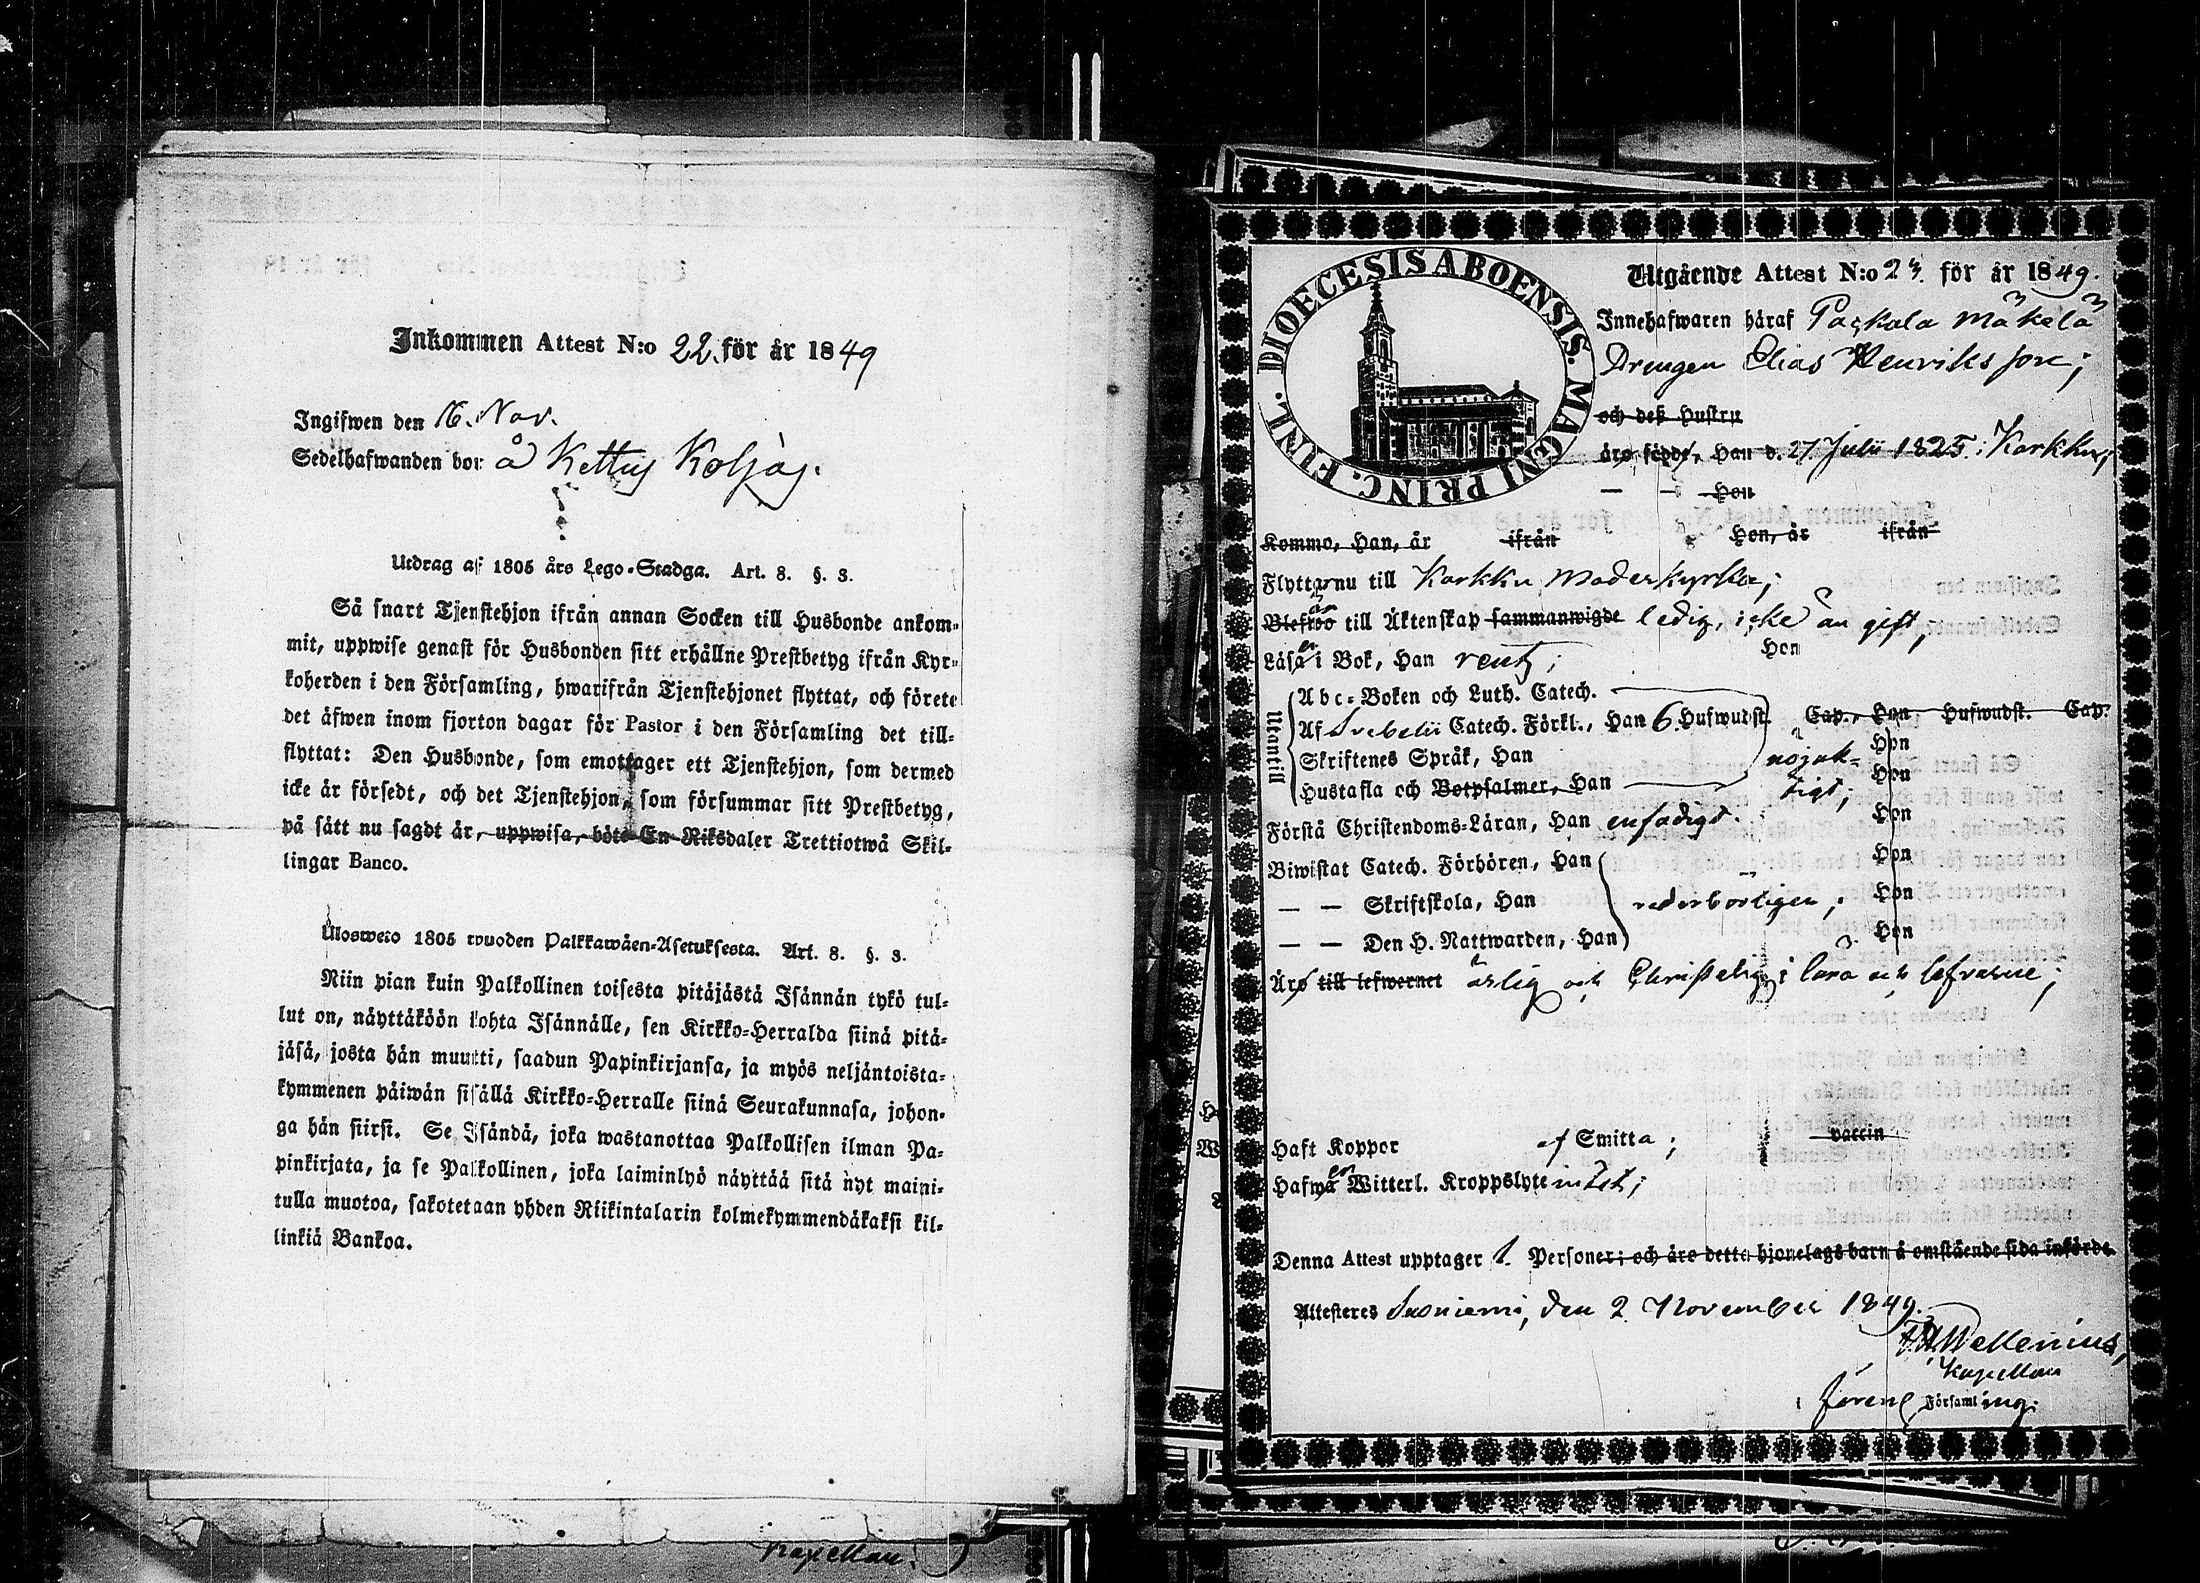 Inkommen Attest N:o 22. för år 1849
Ingifwen den 16. Nov.
Sedelhafwanden bor å Kettuj Koljåg.
Utdrag af 1805 års Lego-Stadga. Art. 8. §. 3.
Så snart Tjenstehjon ifrån annan Socken till Husbonde ankom-
mit, uppwise genast för Husbonden sitt erhållne Prestbetyg ifrån Kyr-
koherden i den Församling, hwarifrån Tjenstehjonet flyttat, och förete
det äfwen inom fjorton dagar för Pastor i den Församling det till-
flyttat: Den Husbonde, som emottager ett Tjenstehjon, som dermed
icke är försedt, och det Tjenstehjon, som försummar sitt Prestbetyg,
på sätt nu sagdt är, uppwisa, böte En Riksdaler Trettiotwå Skil-
lingar Banco.
Ulosweto 1805 wuoden Palkkawäen-Asetuksesta. Art. 8. §. 3.
Niin pian kuin Palkollinen toisesta pitäjästä Isännän tykö tul-
lut on, näyttäköön kohta Isännälle, sen Kirkko-Herralda siinä pitä-
jäsä, josta hän muutti, saadun Papinkirjansa, ja myös neljäntoista-
kymmenen päiwän sisällä Kirkko-Herralle siinä Seurakunnasa, johon-
ga hän siirsi. Se Isändä, joka wastanottaa Palkollisen ilman Pa-
pinkirjata, ja se Palkollinen, joka laiminlyö näyttää sitä nyt maini-
tulla muotoa, sakotetaan yhden Riikintalarin kolmekymmendäkaksi kil-
linkiä Bankoa.
Kapellan.
DIOECESIS ABOENSIS. MAGNI PRINC. FINL.
Utgående Attest N:o 23. för år 1849.
Innehafwaren häraf Packala Mäkelä
Drengen Elias Henriksson;
och deß Hustru
äro födde, Han d. 27 Julii 1825 i Karkku;
— — Hon
Kommo, Han, år ifrån Hon, år ifrån
Flyttar nu till Karkku Moderkyrka;
Blefwo är till Äktenskap sammanwigde ledig, icke än gift,
Läsa er i Bok, Han rent; Hon
Utantill
Abc-Boken och Luth. Catech.
Af Svebelii Catech. Förkl., Han 6. Hufwudst. Cap., Hon Hufwudst. Cap.
Skriftenes Språk, Han nöjak- Hon
Hustafla och Botpsalmer, Han tigt; Hon
Förstå Christendoms-Läran, Han enfadigt. Hon
Biwistat Catech. Förhören, Han Hon
— — Skriftskola, Han vederbörligen; Hon
— — Den H. Nattwarden, Han Hon
Äro till lefwernet ärlig och Christelig i lära och lefverne;
Haft Koppor af Smitta; vaccin
Hafwa er Witterl. Kroppslyte intet;
Denna Attest upptager 1. Personer; och äro detta hjonelags barn å omstående sida införde.
Attesteres Suoniemi, den 2 November 1849.
Wellenius,
Kapellan
i förene Församling.